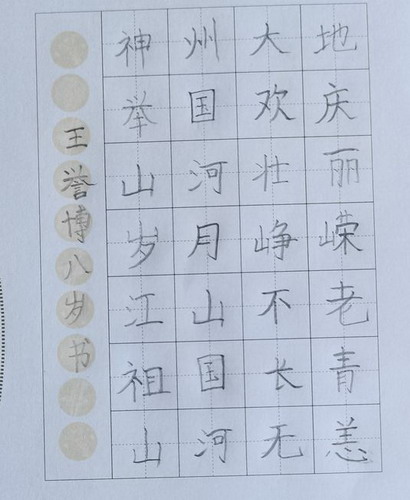 神州大地
举国欢庆
山河壮丽
岁月峥嵘
江山不老
祖国长青
山河无恙
王誉博八岁书